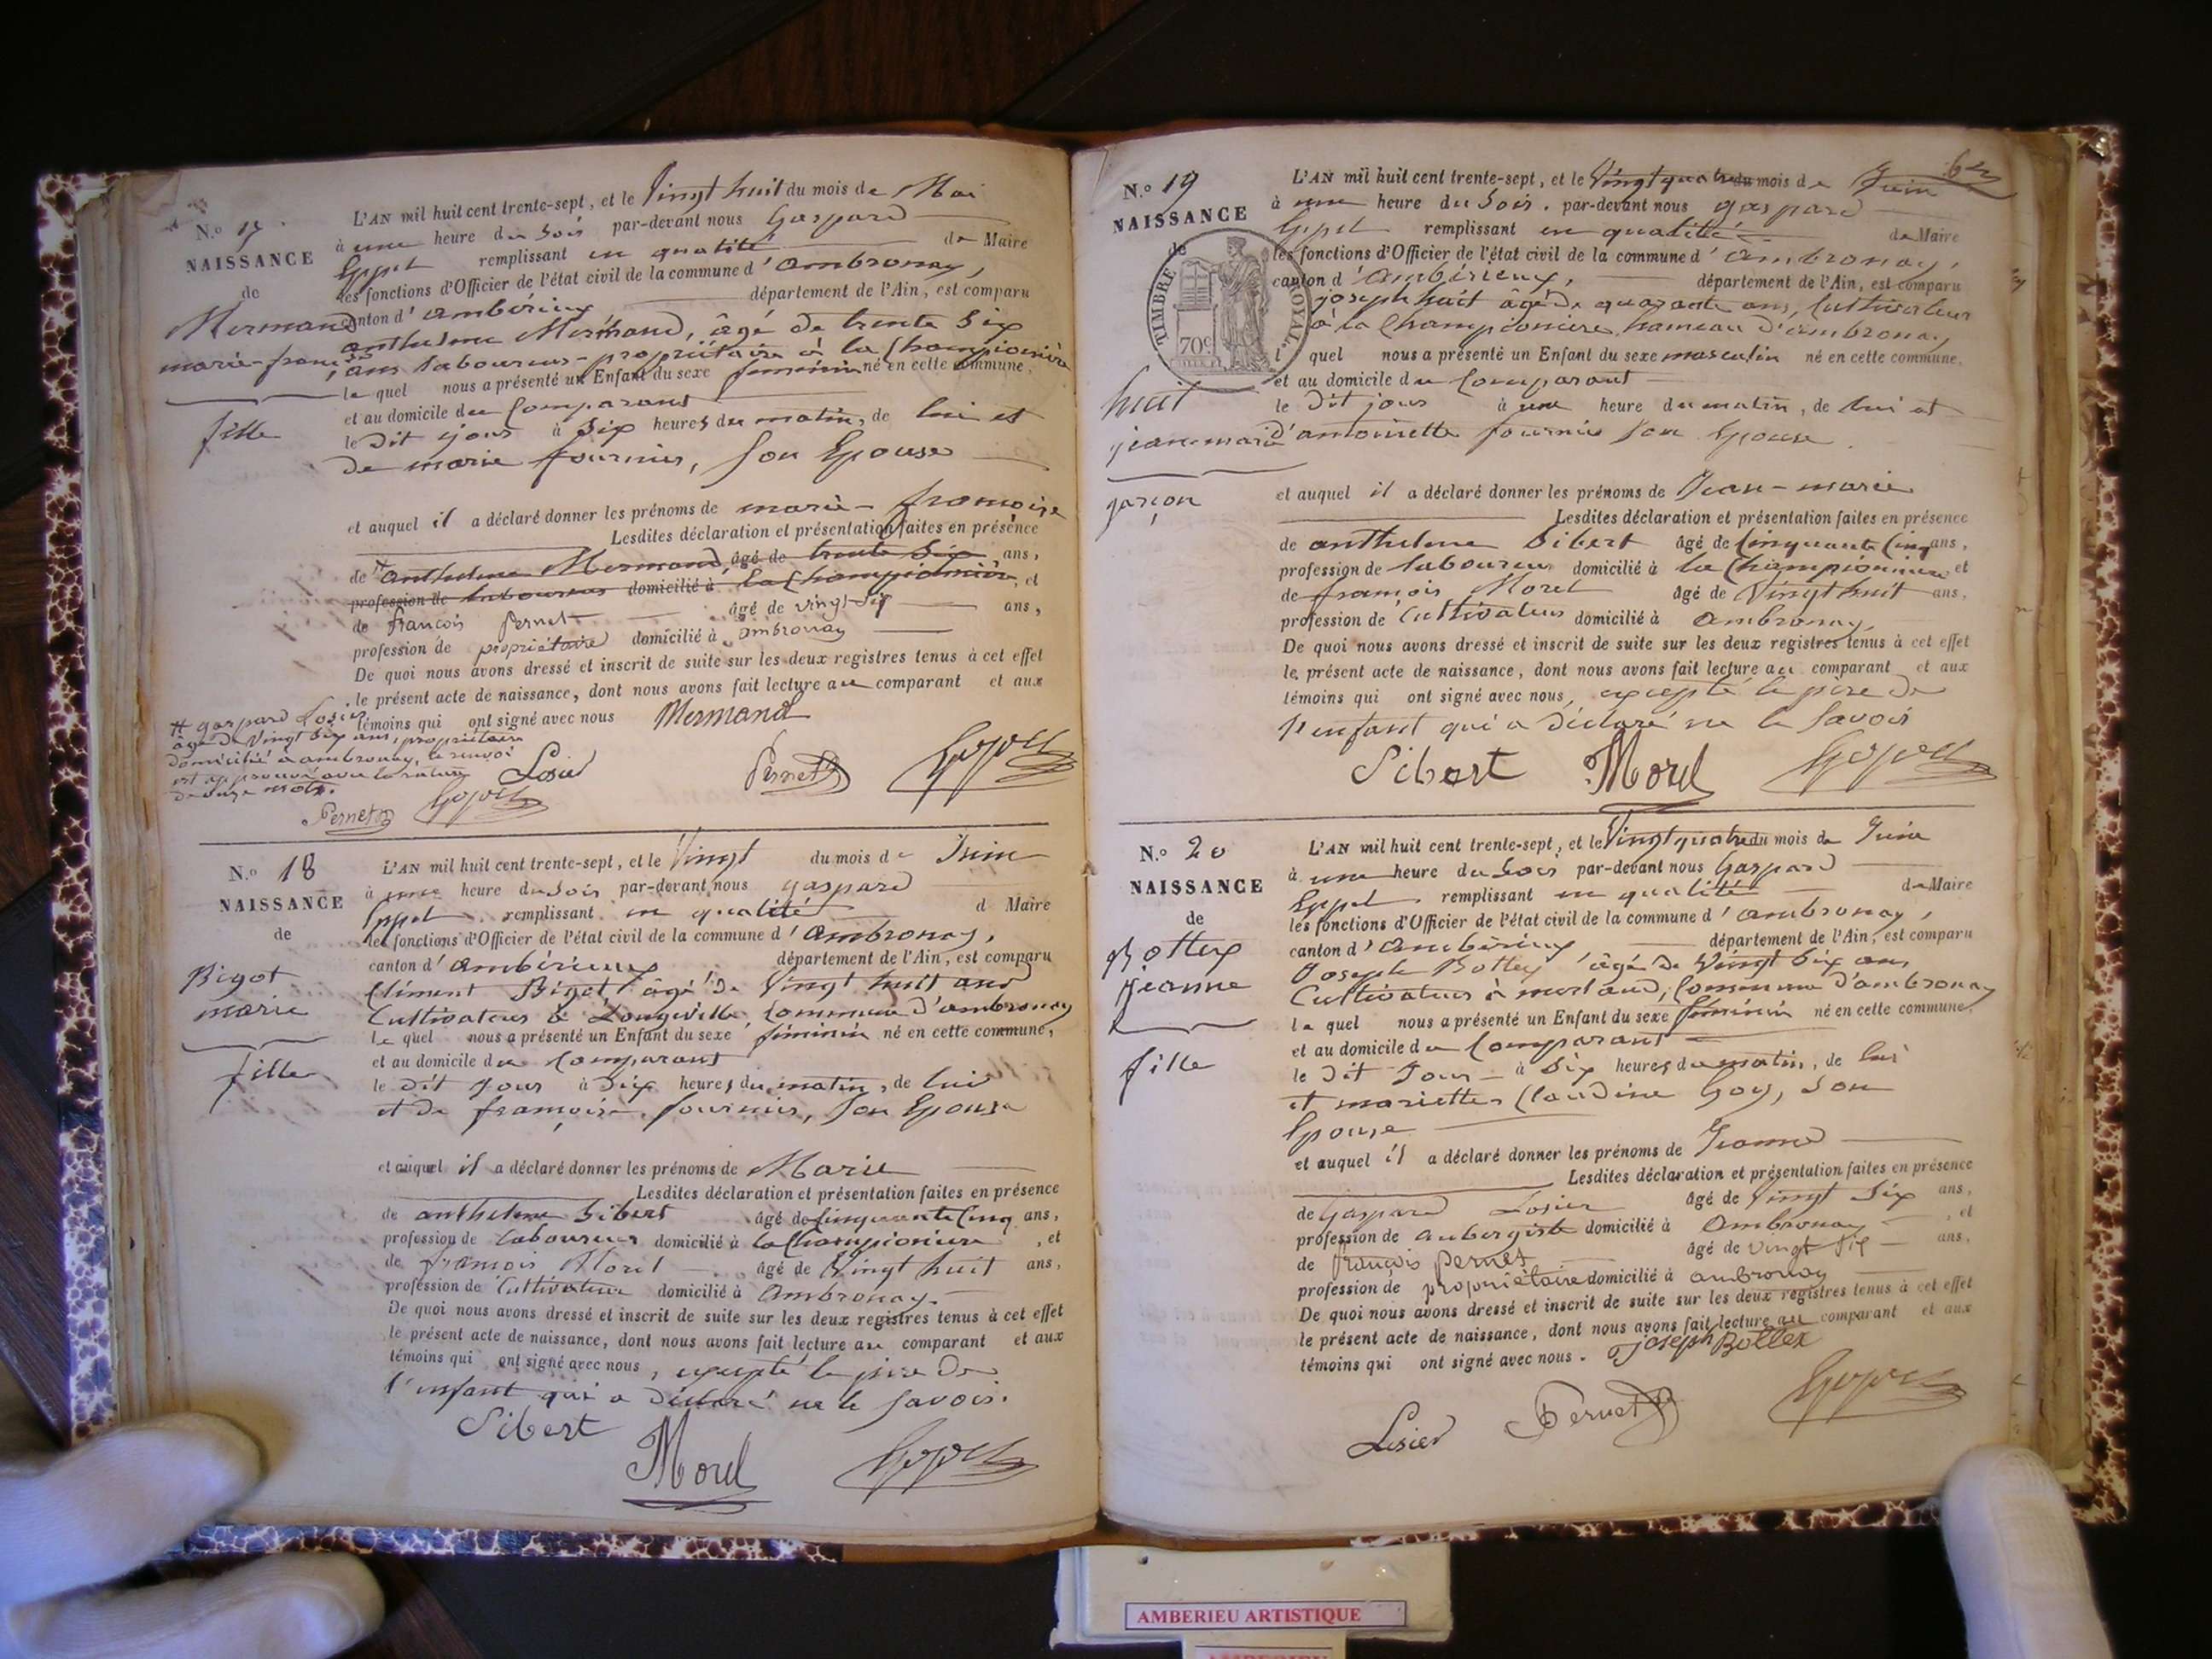 N.º 17
NAISSANCE
de
Mermand
marie-françoise
fille
L'AN mil huit cent trente-sept, et le Vingt huit du mois de Mai
à une heure du Soir par-devant nous Gaspard
remplissant en qualité de Maire
les fonctions d'Officier de l'état civil de la commune d'ambronay,
canton d'ambérieux département de l'Ain, est comparu
anthelme Mermand, âgé de trente Six
ans laboureur-propriétaire à la Championière
le quel nous a présenté un Enfant du sexe féminin né en cette commune,
et au domicile du Comparant
le Dit jour à Six heures du matin, de lui et
de marie fournier, Son Epouse
et auquel il a déclaré donner les prénoms de marie-françoise
Lesdites déclaration et présentation faites en présence
de anthelme Mermand, âgé de trente Six ans,
profession de laboureur domicilié à la Championière, et
de françois Pernet âgé de vingt-six ans,
profession de propriétaire domicilié à ambronay
De quoi nous avons dressé et inscrit de suite sur les deux registres tenus à cet effet
le présent acte de naissance, dont nous avons fait lecture au comparant et aux
témoins qui ont signé avec nous Mermand
# gaspard Losier
âgé de Vingt Six ans, propriétaire
domicilié à ambronay, le renvoi
est approuvé avec la rature
de onze mots.
Losier Pernet
Pernet
N.º 18
NAISSANCE
de
Bigot
marie
fille
L'AN mil huit cent trente-sept, et le Vingt du mois de Juin
à une heure du Soir par-devant nous gaspard
remplissant en qualité d Maire
les fonctions d'Officier de l'état civil de la commune d'ambronay,
canton d'ambérieux département de l'Ain, est comparu
Clément Bigot âgé de Vingt huit ans
Cultivateur à Longeville, Commune d'ambronay
le quel nous a présenté un Enfant du sexe féminin né en cette commune,
et au domicile du Comparant
le dit Jour à Dix heures du matin, de lui
et de françoise fournier, Son Epouse
et auquel il a déclaré donner les prénoms de Marie
Lesdites déclaration et présentation faites en présence
de anthelme Sibert âgé de Cinquante Cinq ans,
profession de laboureur domicilié à la Championiere, et
de françois Morel âgé de Vingt huit ans,
profession de Cultivateur domicilié à Ambronay.
De quoi nous avons dressé et inscrit de suite sur les deux registres tenus à cet effet
le présent acte de naissance, dont nous avons fait lecture au comparant et aux
témoins qui ont signé avec nous, excepté le père de
l'enfant qui a déclaré ne le Savoir.
Sibert Morel
N.º 19
NAISSANCE
de
huit
jean-marie
garçon
TIMBRE ROYAL.
70c
L'AN mil huit cent trente-sept, et le Vingt quatre du mois de Juin
à une heure du Soir. par-devant nous gaspard
remplissant en qualité de Maire
les fonctions d'Officier de l'état civil de la commune d'ambronay,
canton d'ambérieux, département de l'Ain, est comparu
joseph huit âgé de quarante ans, Cultivateur
à la Championiere hameau d'ambronay
l quel nous a présenté un Enfant du sexe masculin né en cette commune,
et au domicile du Comparant
le Dit jour à une heure du matin, de lui et
d'antoinette fournier Son Epouse
et auquel il a déclaré donner les prénoms de Jean-marie
Lesdites déclaration et présentation faites en présence
de anthelme Sibert âgé de Cinquante Cinq ans,
profession de laboureur domicilié à la Championiere et
de françois Morel âgé de Vingt huit ans,
profession de Cultivateur domicilié à Ambronay,
De quoi nous avons dressé et inscrit de suite sur les deux registres tenus à cet effet
le présent acte de naissance, dont nous avons fait lecture au comparant et aux
témoins qui ont signé avec nous, excepté le père de
l'enfant qui a déclaré ne le Savoir
Sibert Morel
N.º 20
NAISSANCE
de
Bottex
jeanne
fille
L'AN mil huit cent trente-sept, et le Vingt quatre du mois de Juin
à une heure du Soir par-devant nous Gaspard
remplissant en qualité de Maire
les fonctions d'Officier de l'état civil de la commune d'ambronay,
canton d'ambérieux, département de l'Ain, est comparu
Joseph Bottex âgé de Vingt Six ans
Cultivateur à merland, Commune d'ambronay
le quel nous a présenté un Enfant du sexe féminin né en cette commune,
et au domicile du Comparant
le Dit Jour à Six heures du matin, de lui
et mariette Claudine Goy, Son
Epouse
et auquel il a déclaré donner les prénoms de Jeanne
Lesdites déclaration et présentation faites en présence
de Gaspard Losier âgé de Vingt Six ans,
profession de aubergiste domicilié à Ambronay, et
de françois Pernet âgé de vingt six ans,
profession de propriétaire domicilié à ambronay
De quoi nous avons dressé et inscrit de suite sur les deux registres tenus à cet effet
le présent acte de naissance, dont nous avons fait lecture au comparant et aux
témoins qui ont signé avec nous. joseph Bottex
Losier Pernet
AMBERIEU ARTISTIQUE